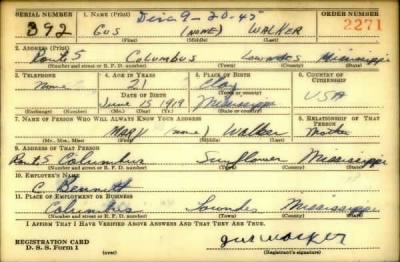 SERIAL NUMBER 1. NAME (Print) Dis. 9-20-45 ORDER NUMBER
392 GUS (NONE) WALKER 2271
(First) (Middle) (Last)
2. ADDRESS (Print)
Route 5 Columbus Lowndes Mississippi
(Number and street or R. F. D. number) (Town) (County) (State)
3. TELEPHONE 4. AGE IN YEARS 5. PLACE OF BIRTH 6. COUNTRY OF CITIZENSHIP
none 21 Clay
DATE OF BIRTH (Town or county)
June 15 1919 Mississippi USA
(Exchange) (Number) (Mo.) (Day) (Yr.) (State or country)
7. NAME OF PERSON WHO WILL ALWAYS KNOW YOUR ADDRESS 8. RELATIONSHIP OF THAT PERSON
MARY (none) Walker Mother
(Mr., Mrs., Miss) (First) (Middle) (Last)
9. ADDRESS OF THAT PERSON
Rout. 5 Columbus Sunflower Mississippi
(Number and street or R. F. D. number) (Town) (County) (State)
10. EMPLOYER'S NAME
C Bennett
11. PLACE OF EMPLOYMENT OR BUSINESS
Columbus Lowndes Mississippi
(Number and street or R. F. D. number) (Town) (County) (State)
I AFFIRM THAT I HAVE VERIFIED ABOVE ANSWERS AND THAT THEY ARE TRUE.
REGISTRATION CARD
D. S. S. FORM 1 (over) (Registrant's signature)